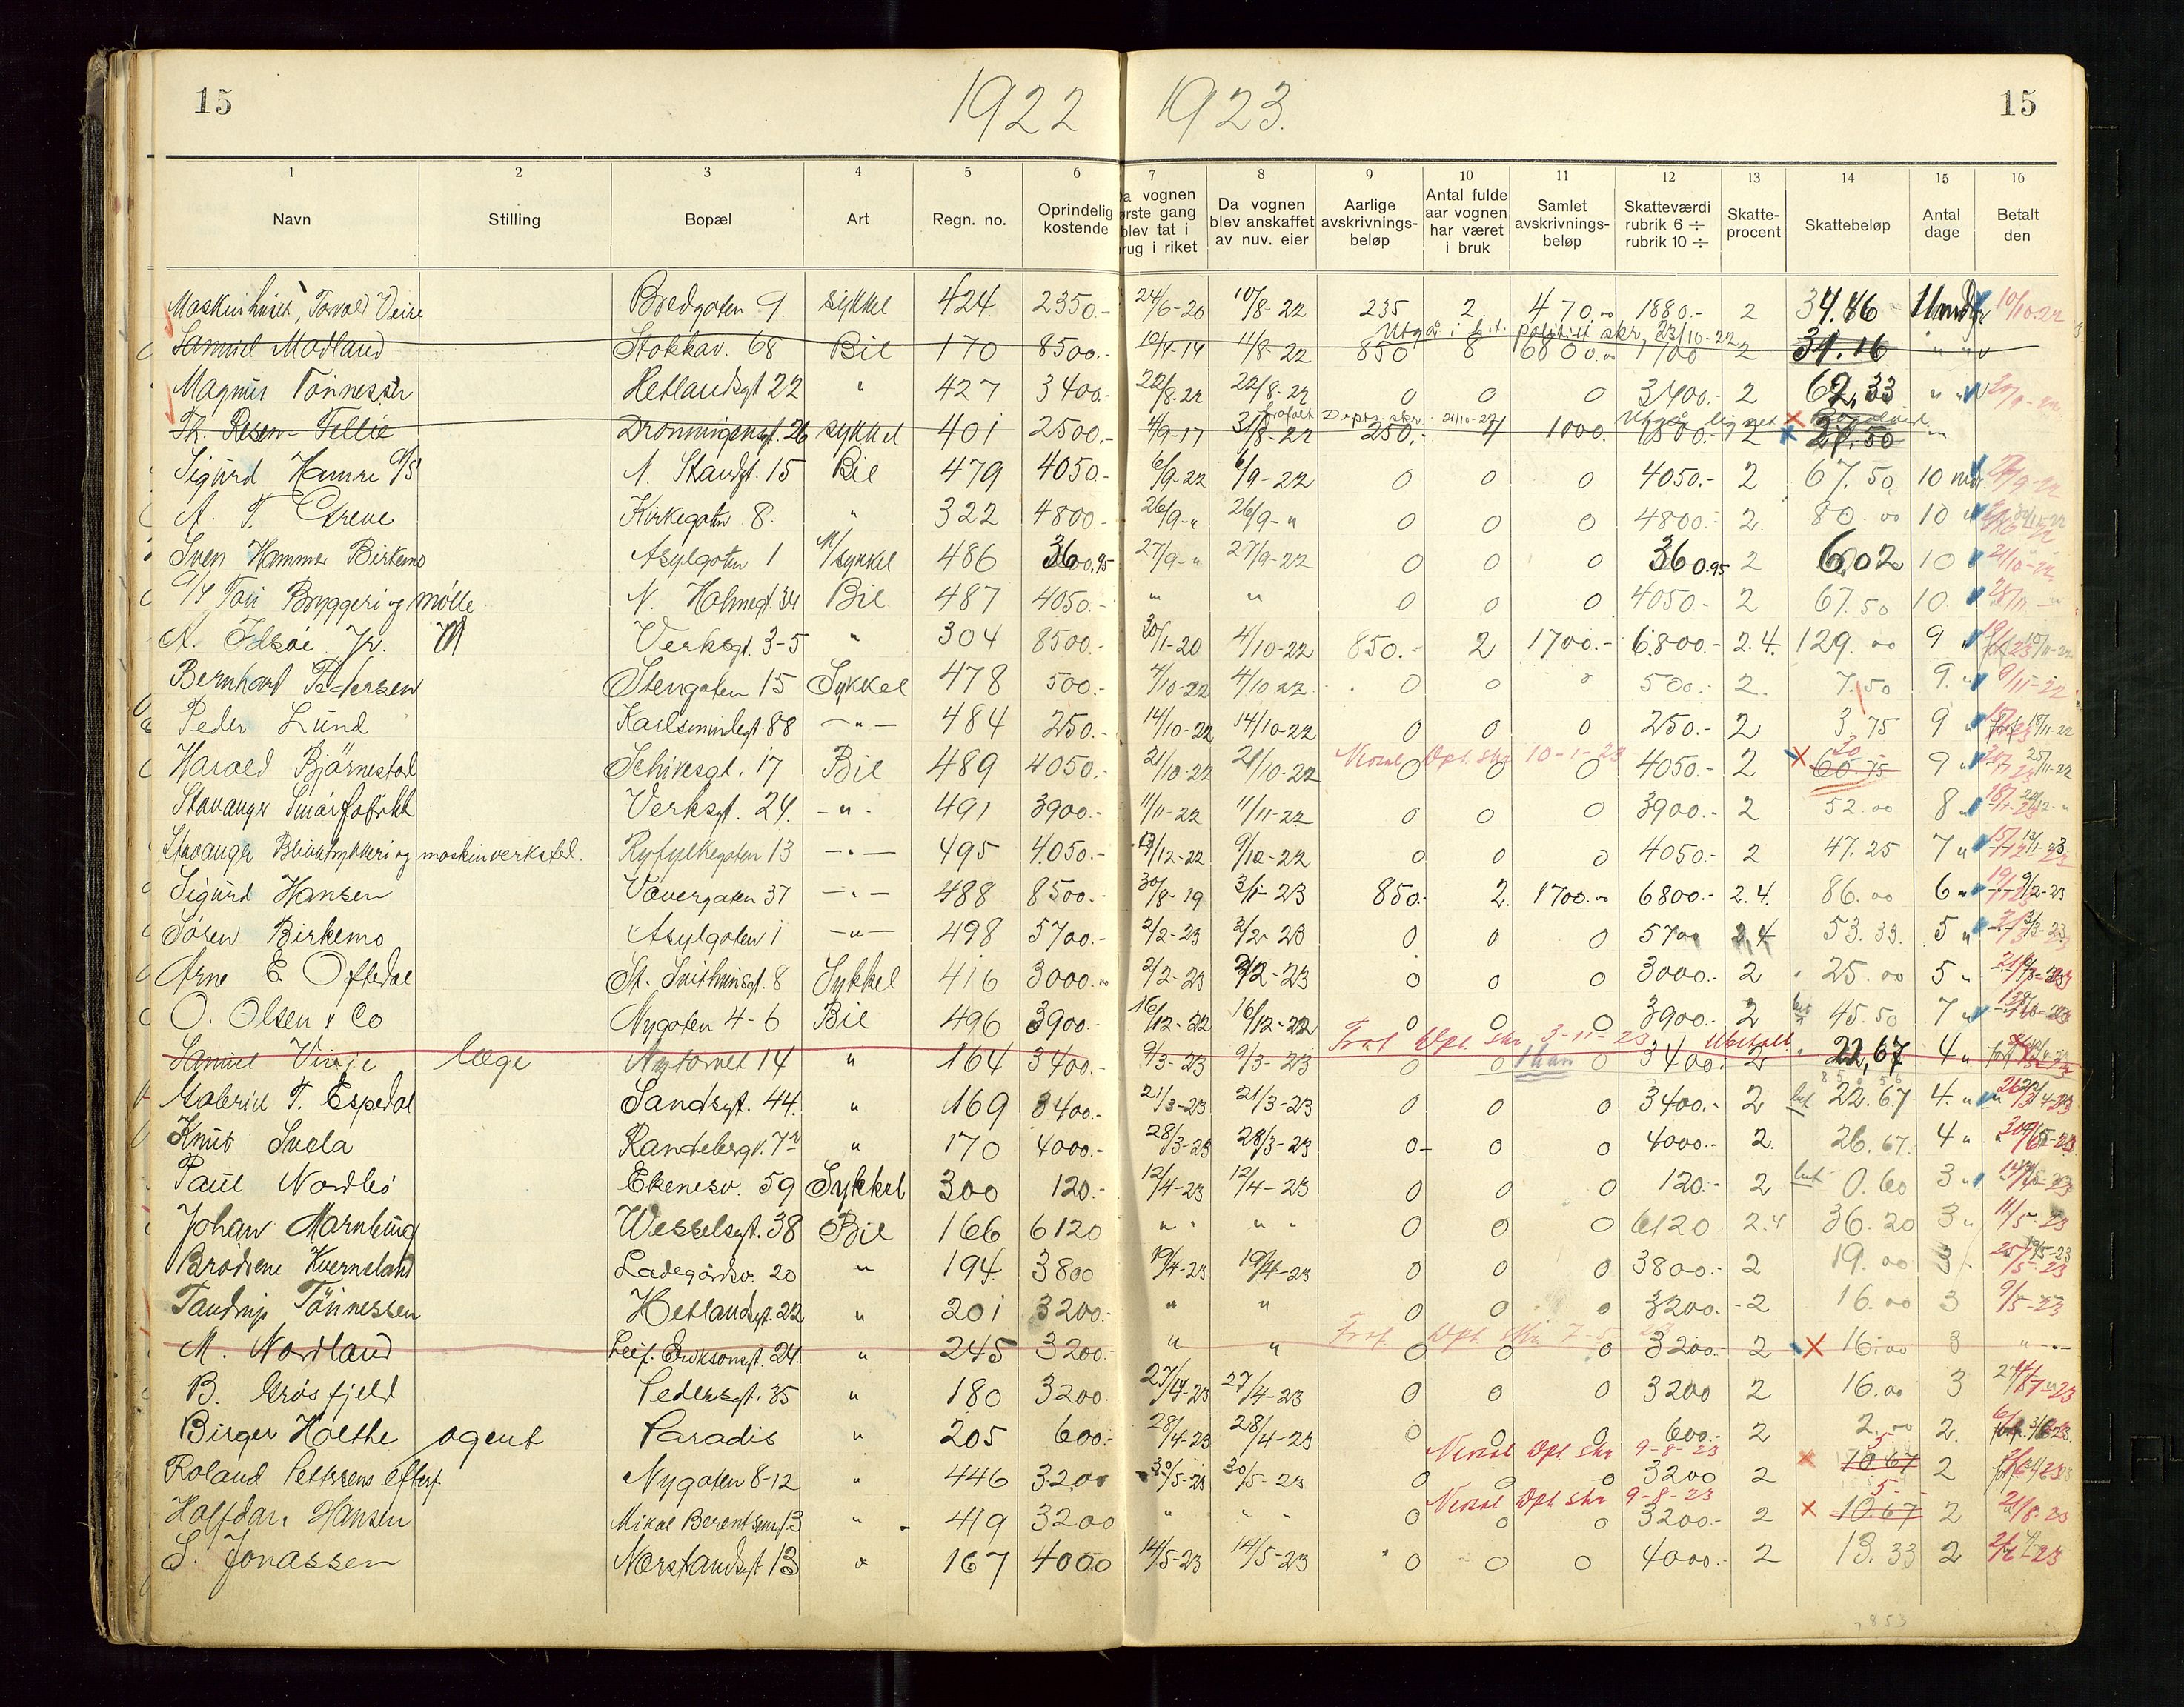 15 1922 1923. 15
1 2 3 4 5 6 7 8 9 10 11 12 13 14 15 16
Navn Stilling Bopæl Art Regn. no. Oprindelig kostende Da vognen første gang blev tat i brug i riket Da vognen blev anskaffet av nuv. eier Aarlige avskrivnings-beløp Antal fulde aar vognen har været i bruk Samlet avskrivnings-beløp Skatteværdi rubrik 6 ÷ rubrik 10 ÷ Skatte-procent Skattebeløp Antal dage Betalt den
Maskinhuset, Torvald Bredgaten 9. sykkel 424 2350.- 24/6-20 10/8-22 235 2 470.00 1880.- 2 34.46 11 mnd 10/10-22
Utgå i h.t. politi skr. 23/10-22
Samuel Madland Stokkav. 68 Bil 170 8500.- 10/4-14 11/8-22 850 8 6800.00 1700 2 31.16 " "
Magnus Tønnessen Hetlandsgt 22 " 427 3400.- 22/8-22 22/8-22 0 0 0 3400.- 2 62,33 " "
Th. Resen-Fellie Dronningensgt. 26 sykkel 401 2500.- 4/9-17 31/8-22 250.- 4 1000. 1500.- 2 27.50 "
Sigurd Hamre A/S N. Standgt. 15 Bil 479 4050.- 6/9-22 6/9-22 0 0 0 4050.- 2 67.50 10 mnd.
A. T. Greve Kirkegaten 8. " 322 4800.- 26/9-" 26/9-" 0 0 0 4800.- 2. 80.00 10 "
Sven Hammer Birkemo Asylgaten 1 M/sykkel 486 360.95 27/9-" 27/9-22 0 0 0 360.95 2 6,02 10 21/10-22
A/S Tou Bryggeri og Mølle N. Holmegt. 34 Bil 487 4050.- " " 0 0 0 4050.- 2 67.50 10.
A. Idsøe Jr. Verksgt. 3-5 " 304 8500.- 30/1-20 4/10-22 850.- 2 1700.- 6800.- 2.4. 129.00 9 "
Bernhard Pedersen Stengaten 15 Sykkel 478 500.- 4/10-22 4/10-22 0 0 0 500.- 2. 7.50 9. " 9/11-22
Peder Lund Karlsmindegt. 88 -"- 484 250.- 14/10-22 14/10-22 0 0 0 250.- 2 3.75 9 " 18/11-22
Nedsat Dpt. skr 10-1-23 20
Harald Bjørnestad Schivesgt. 17 Bil 489 4050.- 21/10-22 21/10-22 0 0 0 4050.- 2 60.75 9 " 25/11-22
Stavanger Smørfabrikk Verksgt. 24. -"- 491 3900.- 11/11-22 11/11-22 0 0 0 3900.- 2 52.00 8 "
Stavanger Blikktrykkeri og maskinverksted. Ryfylkegaten 13 -"- 495 4.050.- 9/12-22 9/12-22 0 0 0 4050.- 2 47.25 7 "
Sigurd Hansen Vauergaten 37 -"- 488 8500.- 30/8-19 3/1-23 850.- 2. 1700.- 6800.- 2.4. 86.00 6 " 9/2-23
Søren Birkemo Asylgaten 1 -"- 498 5700.- 2/2-23 2/2-23 0 0 0 5700 2,4 53.33. 5 "
Arne E Oftedal St. Svithunsgt. 8 Sykkel 416 3000.- 2/2-23 2/2-23 0 0 0 3000.- 2 25.00 5 "
O. Olsen & Co Nygaten 4-6 Bil 496 3900.- 16/12-22 16/12-22 0 0 0 3900.- 2 45.50 7 "
Fraf. Dpt. skr 3-11-23 Ubetalt
Samuel Vinje læge Nytorvet 14 " 164 3400.- 9/3-23 9/3-23 0 0 0 3400.- 2 22,67 4 "
Gabriel T. Espedal Sandsgt. 44. " 169 3400.- 21/3-23 21/3-23 0 0 0 3400.- 2 22.67 4. "
Knut Svela Randebergv. 7 " 170 4000.- 28/3-23 28/3-23 0 0 0 4000.- 2. 26.67. 4 "
Paul Nordbø Ekenesv. 59 Sykkel 300 120.- 12/4-23 12/4-23 0 0 0 120.- 2 0.60 3 "
Johan Marnburg Wesselsgt. 38 Bil 166 6120 " " " " 0 0 0 6120 2.4 36.20 3 " 11/5-23
Brødrene Kverneland Ladegårdsv. 20 " 194 3800 19/4-23 19/4-23 0 0 0 3800.- 2 19.00 3
Tandrup Tønnessen Hetlandsgt. 22 " 201 3200.- " " 0 0 0 3200.- 2 16.00 3 9/5-23
Fraf. Dpt. skr 7-5-
M. Nordland Leif. Eriksonsgt. 24. " 245 3200.- " " 0 0 0 3200.- 2 16.00 3
B. Grøsfjeld Pedersgt. 35 " 180 3200. 27/4-23 27/4-23 0 0 0 3200 2 16.00 3
Birger Holthe agent Paradis " 205 600.- 28/4-23 28/4-23 0 0 0 600.- 2 2.00 2.
Nedsat Dpt skr 9-8-23 5.-
Roland Pettersens eftf Nygaten 8-12 " 446 3200 30/5-23 30/5-23 0 0 0 3200 2 10.67 2
Nedsat Dpt skr 9-8-23 5.-
Halfdan Hansen Mikal Berentsensgt. 3 " 419 3200 " " 0 0 0 3200.- 2 10.67 2 21/8-23
S. Jonassen Nørstandsgt 13 " 167 4000 14/5-23 14/5-23 0 0 0 4000.- 2 13.33 2
7853